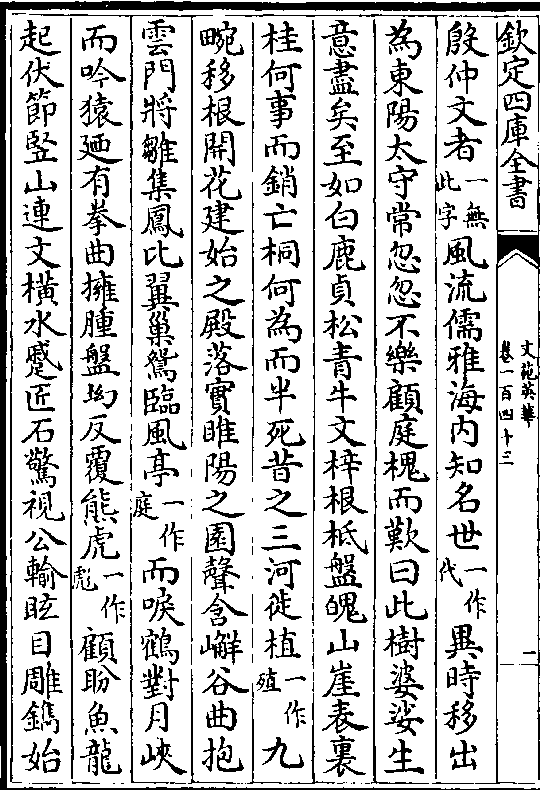 欽定四庫全書
文苑英華
卷一百四十三
二
殷仲文者一無此字風流儒雅海內知名世一作代異時移出
為東陽太守常忽忽不樂顧庭槐而歎曰此樹婆娑生
意盡矣至如白鹿貞松青牛文梓根柢盤魄山崖表裏
桂何事而銷亡桐何為而半死昔之三河徙植一作殖九
畹移根開花建始之殿落實睢陽之園聲含嶰谷曲抱
雲門將雛集鳳比翼巢鴛臨風亭一作庭而唳鶴對月峽
而吟猿廼有拳曲擁腫盤坳反覆熊虎一作彪顧盼魚龍
起伏節竪山連文橫水蹙匠石驚視公輸眩目雕鐫始